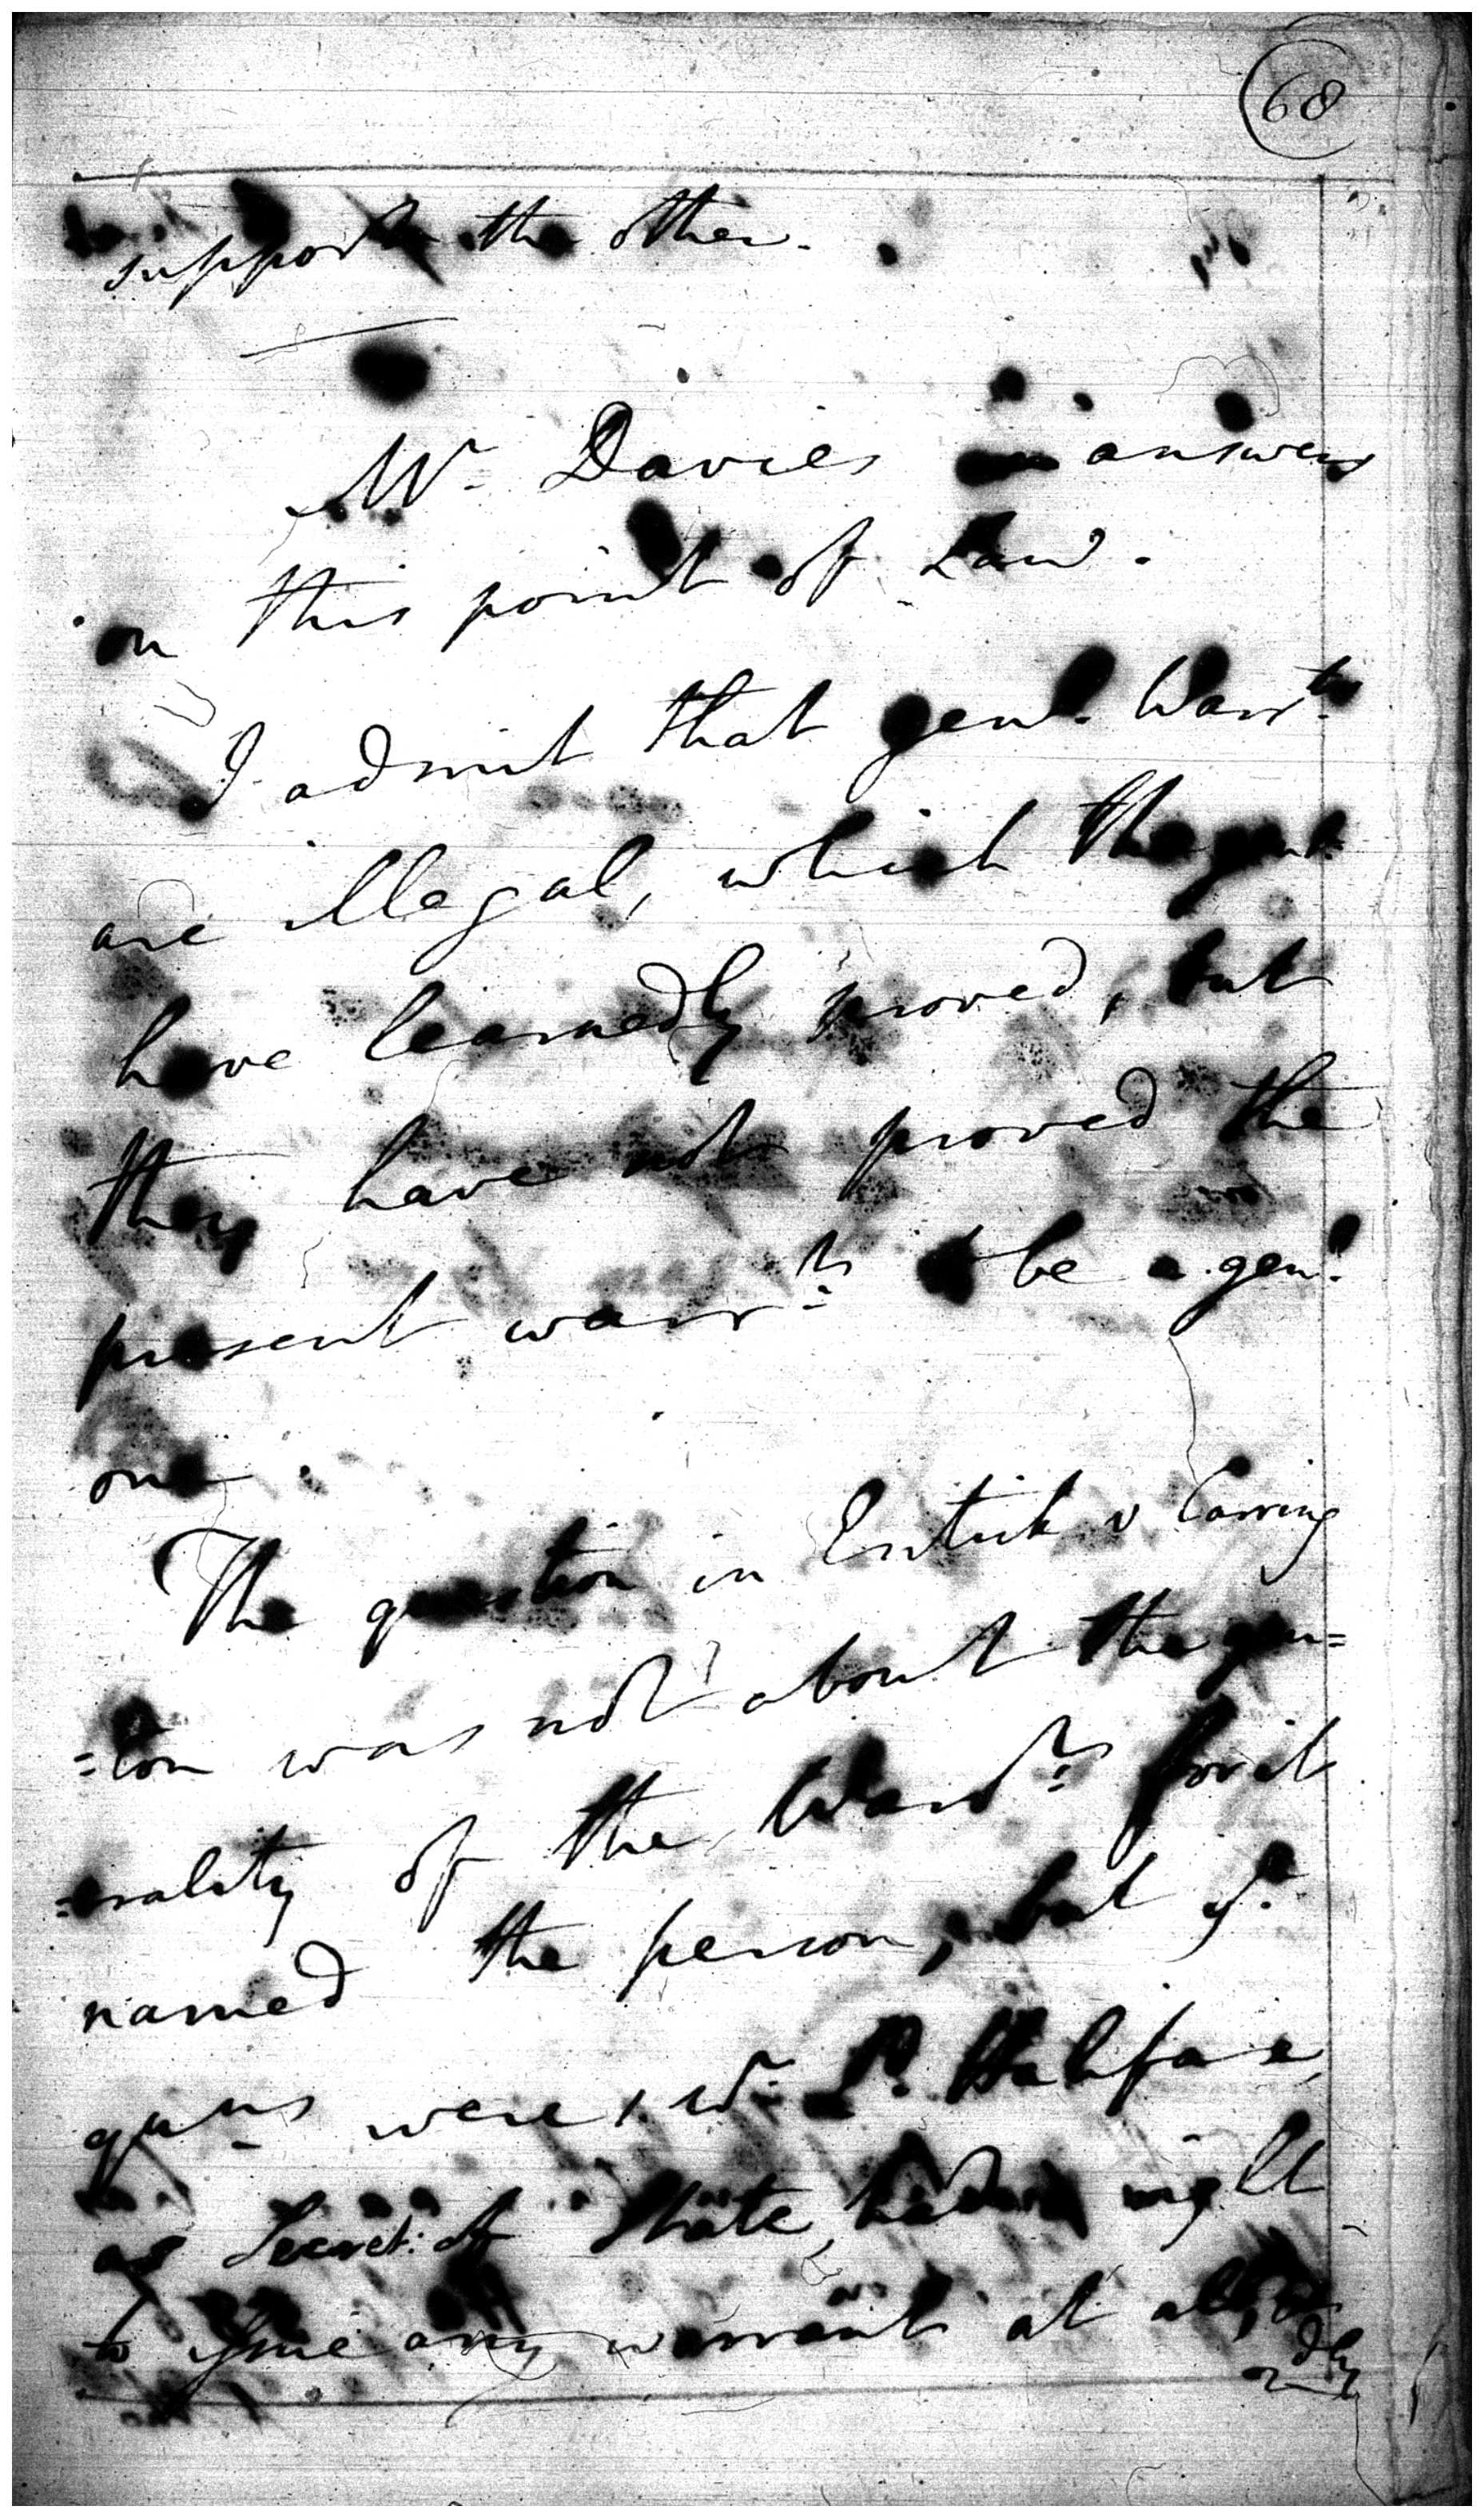 68
support the other.
Mr. Davies answers
on this point of Law.
I admit that genl. Warrts.
are illegal, which the gent
have learnedly proved, but
they have not proved the
present warrts. to be a genl.
one.
The question in Entick v Carring
=ton was not about the gen=
=erality of the Warrts. for it
named the person, but ye.
quns were, 1. wr. Ld. Halifax,
as Secret: of State, had
to issue any warrant at all,
2dly